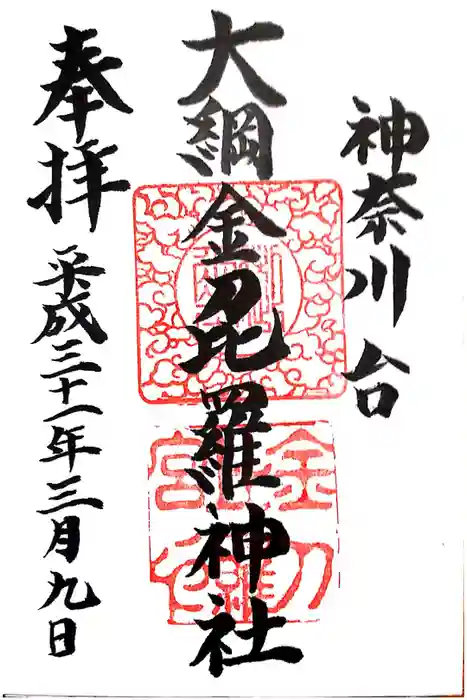 神奈川台
大綱金毘羅神社
奉拝
平成三十一年三月九日